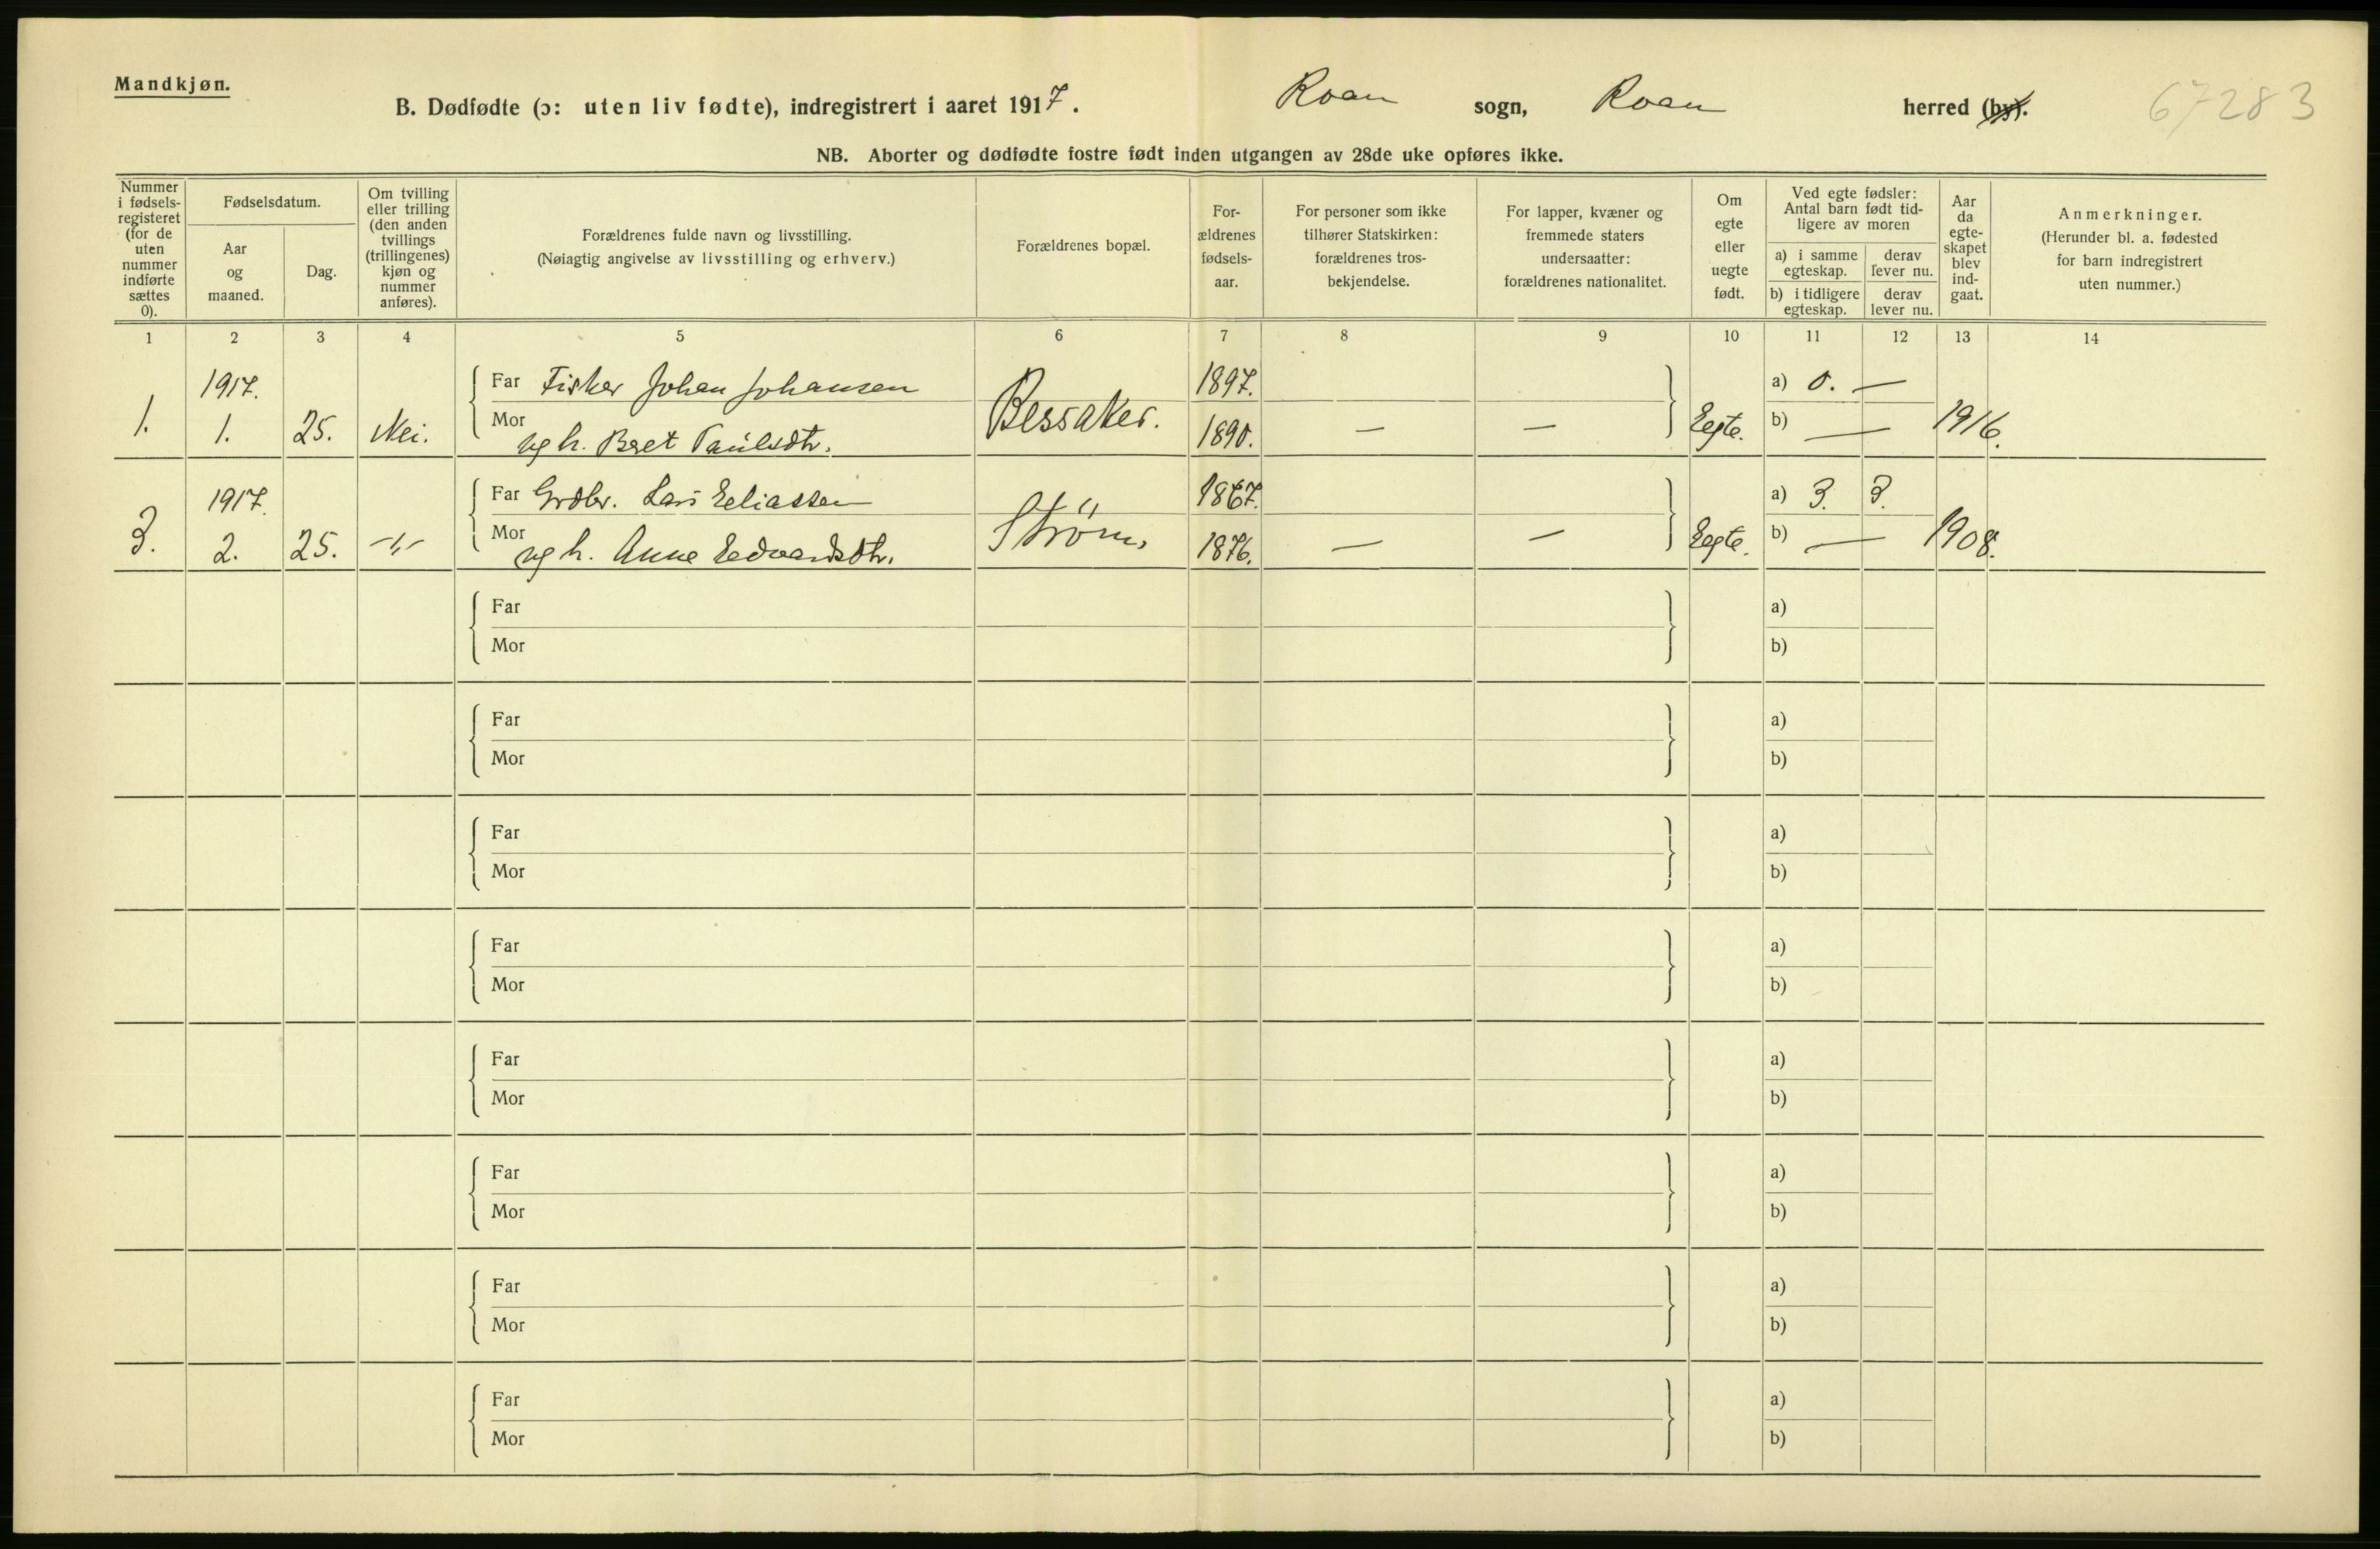 Mandkjøn.
B. Dødfødte (ɔ: uten liv fødte), indregistrert i aaret 1917. Roan sogn, Roan herred (by).
67283
NB. Aborter og dødfødte fostre født inden utgangen av 28de uke opføres ikke.
Nummer i fødsels-registeret (for de uten nummer indførte sættes 0).
Fødselsdatum.
Aar og maaned.
Dag.
Om tvilling eller trilling (den anden tvillings (trillingenes) kjøn og nummer anføres).
Forældrenes fulde navn og livsstilling.
(Nøiagtig angivelse av livsstilling og erhverv.)
Forældrenes bopæl.
For-ældrenes fødsels-aar.
For personer som ikke tilhører Statskirken: forældrenes tros-bekjendelse.
For lapper, kvæner og fremmede staters undersaatter: forældrenes nationalitet.
Om egte eller uegte født.
Ved egte fødsler: Antal barn født tid-ligere av moren
a) i samme egteskap.
derav lever nu.
b) i tidligere egteskap.
derav lever nu.
Aar da egte-skapet blev ind-gaat.
Anmerkninger.
(Herunder bl. a. fødested for barn indregistrert uten nummer.)
1 2 3 4 5 6 7 8 9 10 11 12 13 14
1917. Far Fisker Johan Johansen 1897. a) 0. —
1. 1. 25. Nei. Mor og h. Beret Paulsdtr. Bessaker. 1890. — — Egte. b) — 1916.
1917. Far Grdbr. Lars Eeliassen 1867. a) 3. 3.
3. 2. 25. -"- Mor og h. Anne Eedvardsdtr. Strøm, 1876. — — Egte. b) — 1908.
Far a)
Mor b)
Far a)
Mor b)
Far a)
Mor b)
Far a)
Mor b)
Far a)
Mor b)
Far a)
Mor b)
Far a)
Mor b)
Far a)
Mor b)